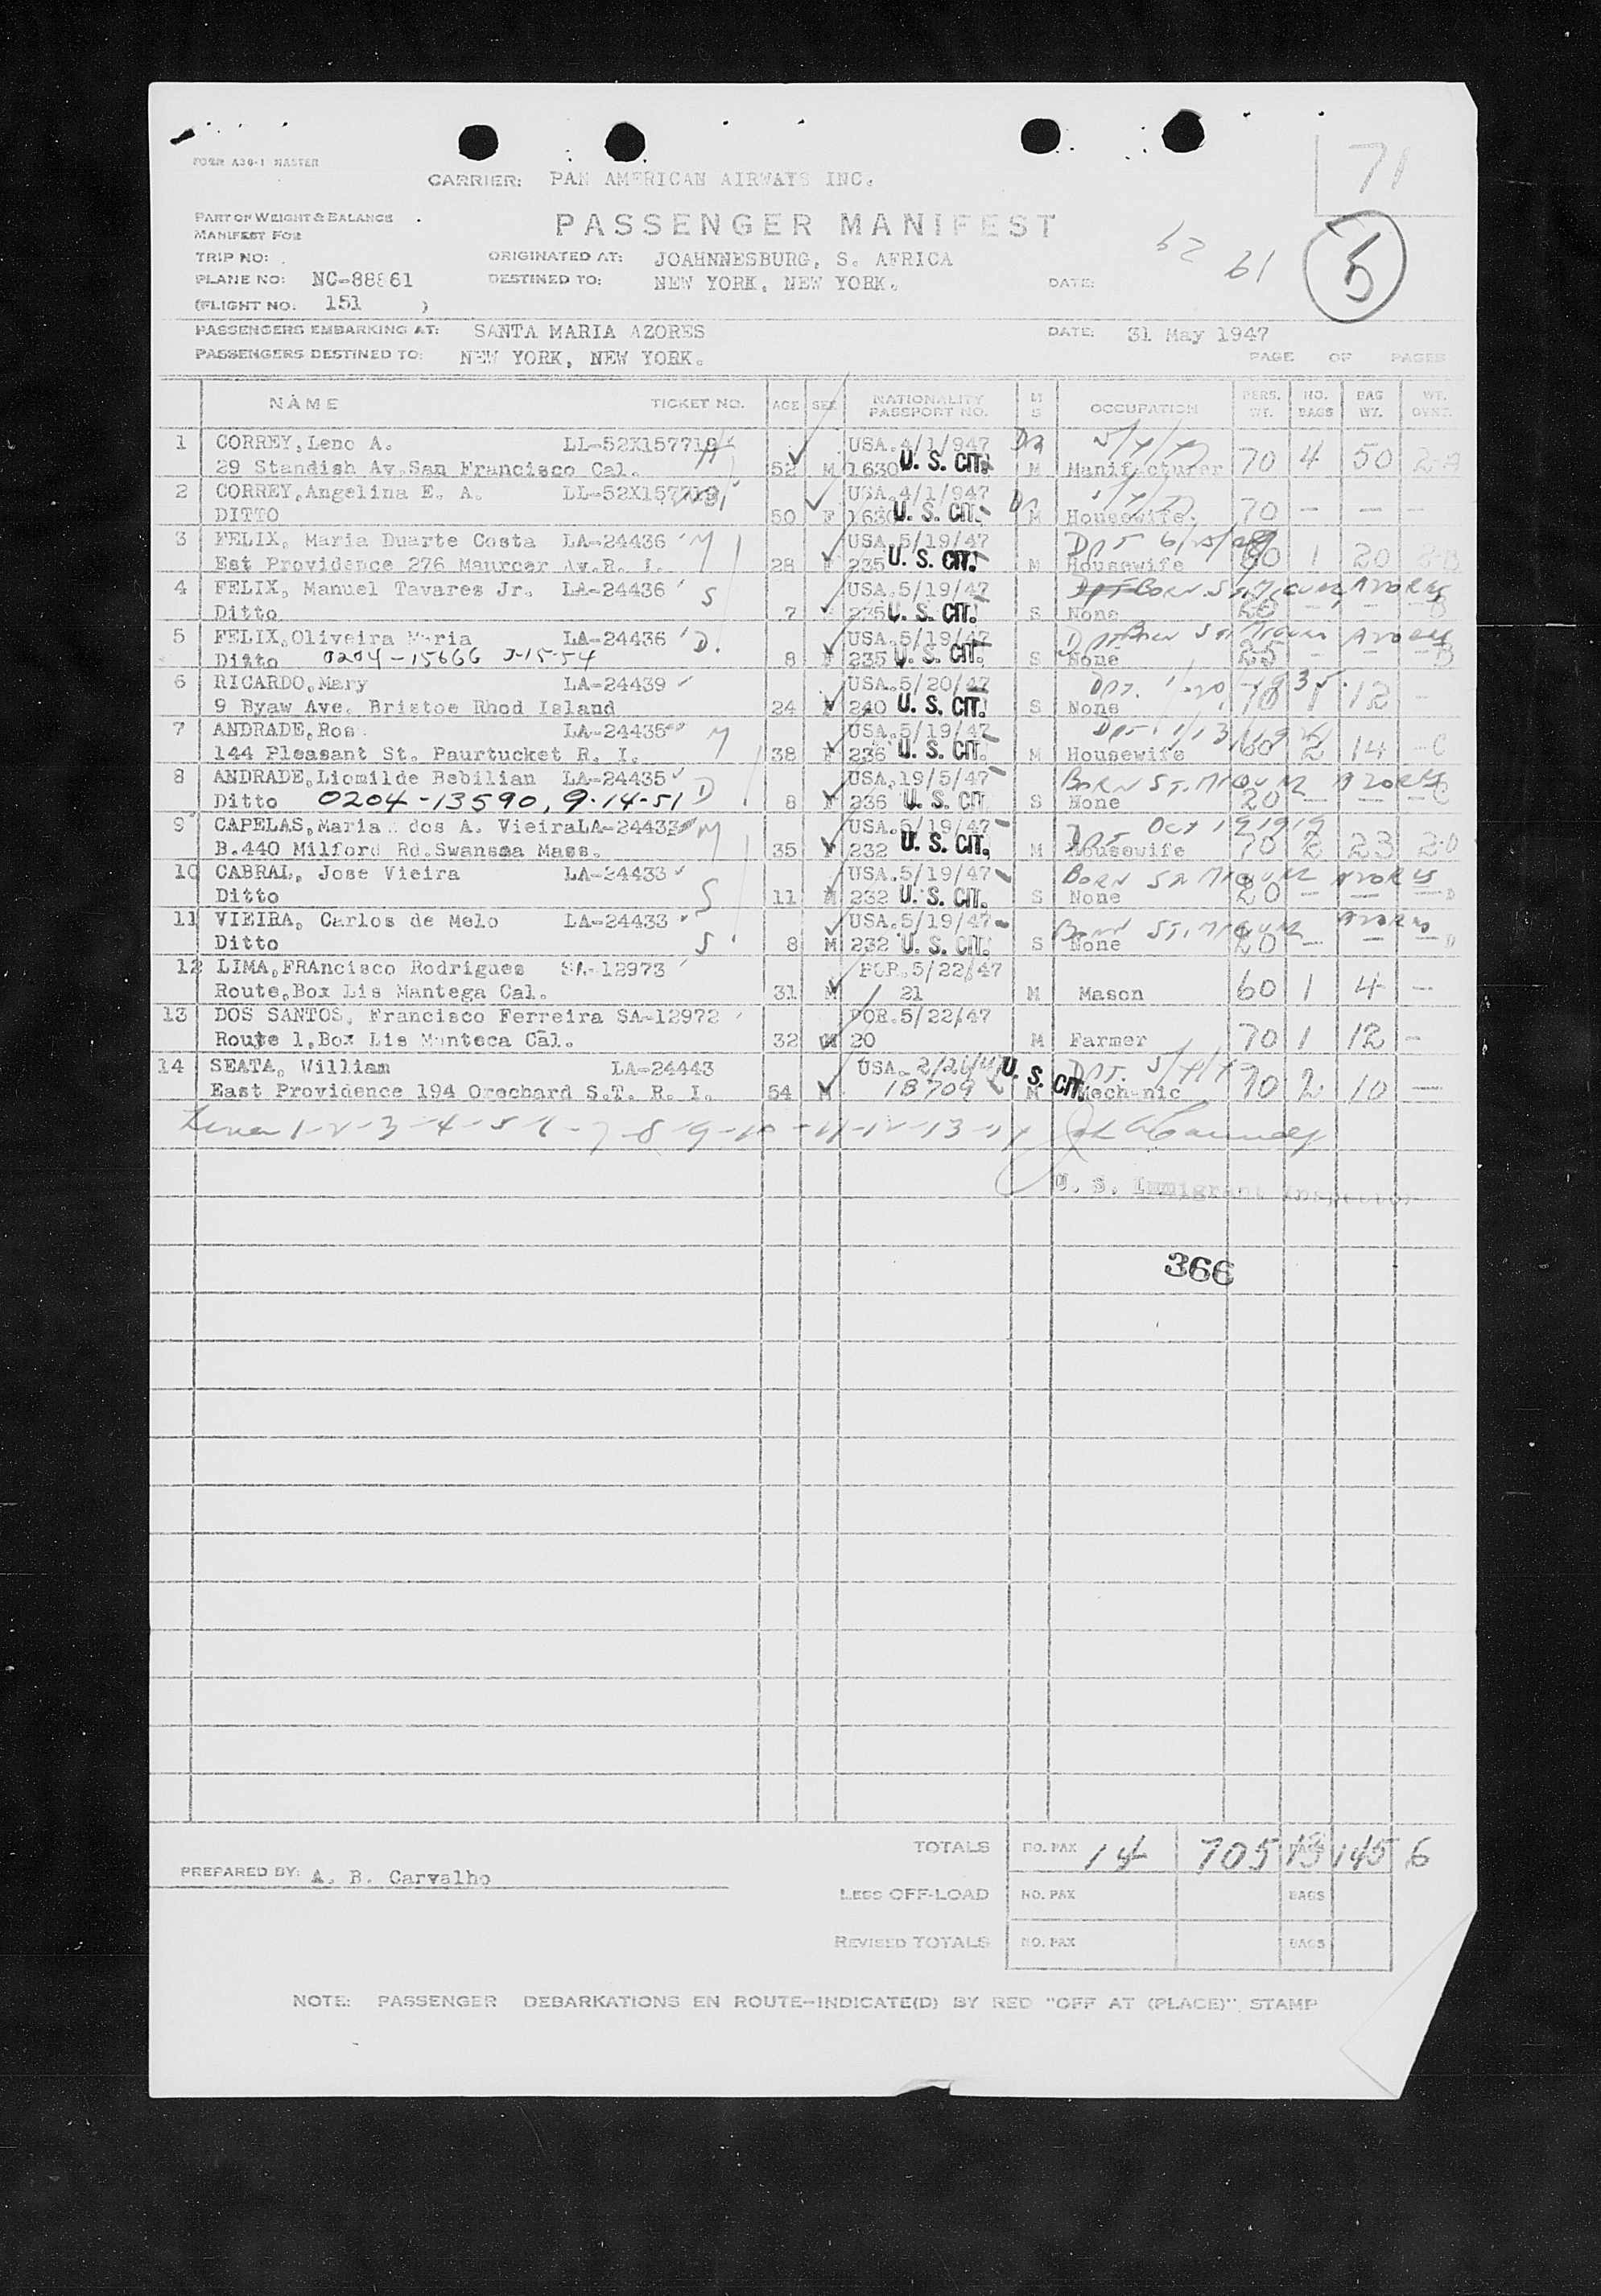 FORM A30-1 MASTER
71
CARRIER: PAN AMERICAN AIRWAYS INC.
PART OF WEIGHT & BALANCE
MANIFEST FOR
PASSENGER MANIFEST
62 61 5
TRIP NO:
ORIGINATED AT: JOAHNNESBURG, S. AFRICA
PLANE NO: NC-88861
DESTINED TO: NEW YORK, NEW YORK.
DATE:
(FLIGHT NO: 151 )
PASSENGERS EMBARKING AT: SANTA MARIA AZORES
DATE: 31 May 1947
PASSENGERS DESTINED TO: NEW YORK, NEW YORK.
PAGE OF PAGES
NAME TICKET NO. AGE SEX NATIONALITY PASSPORT NO. M S OCCUPATION PERS. WT. NO. BAGS BAG WT. WT. GVNT.
1 CORREY, Leno A. LL-52X157719 USA.4/1/947
29 Standish Av.San Francisco Cal. 52 M 1630 U. S. CIT. M Manifacturer 70 4 50 2-A
2 CORREY,Angelina E. A. USA.4/1/947
DITTO 50 F 1630 U. S. CIT. M Housewife. 70 - - -
3 FELIX, Maria Duarte Costa LA-24436 M USA.5/19/47
Est Providence 276 Maurcer Av.R. I. 28 F 235 U. S. CIT. M Housewife 1 20 2-B
4 FELIX, Manuel Tavares Jr. LA-24436 S USA.5/19/47 BORN ST. MIGUEL AZORES
Ditto 7 U. S. CIT. S None 20 - - - B
5 FELIX,Oliveira Maria LA-24436 D. USA.5/19/47 AZORES
Ditto 0204-15666 8 F 235 U. S. CIT. S None 25 - - - B
6 RICARDO,Mary LA-24439 USA.5/20/47 DPT. 1935
9 Byaw Ave. Bristoe Rhod Island 24 F 240 U. S. CIT. S None 70 1 12 -
7 ANDRADE,Rosa LA-24435 M USA.5/19/47
144 Pleasant St. Paurtucket R. I. 38 F 236 U. S. CIT. M Housewife 60 2 14 - C
8 ANDRADE,Liomilde Bebilian LA-24435 D USA.19/5/47 BORN ST. MIGUEL AZORES
Ditto 0204-13590, 9-14-51 8 F 236 U. S. CIT S None 20 - - - C
9 CAPELAS,Maria dos A. Vieira LA-24433 M USA.5/19/47 DPT. Oct 19 1919
B.440 Milford Rd.Swansea Mass. 35 F 232 U. S. CIT. M Housewife 70 2 23 2-D
10 CABRAL, Jose Vieira LA-24433 S USA.5/19/47 BORN ST MIGUEL AZORES
Ditto 11 M 232 U. S. CIT. S None 20 - - - D
11 VIEIRA, Carlos de Melo LA-24433 USA.5/19/47 BORN ST. MIGUEL AZORES
Ditto S 8 M 232 U. S. CIT. S None 20 - - - D
12 LIMA,FRAncisco Rodrigues SA-12973 POR.5/22/47
Route,Box Lis Mantega Cal. 31 M 21 M Mason 60 1 4 -
13 DOS SANTOS, Francisco Ferreira SA-12972 POR.5/22/47
Route 1,Box Lis Manteca Cal. 32 M 20 M Farmer 70 1 12 -
14 SEATA, William LA-24443 USA. DPT.
East Providence 194 Orechard S.T. R. I. 54 M 18709 U. S. CIT. M Mechanic 70 2 10 -
1-2-3-4-5-6-7-8-9-10-11-12-13-14
U. S. Immigrant Inspector
366
TOTALS NO. PAX 14 705 13 145 6
PREPARED BY: A. B. Carvalho
LESS OFF-LOAD NO. PAX BAGS
REVISED TOTALS NO. PAX BAGS
NOTE: PASSENGER DEBARKATIONS EN ROUTE-INDICATE(D) BY RED "OFF AT (PLACE)" STAMP